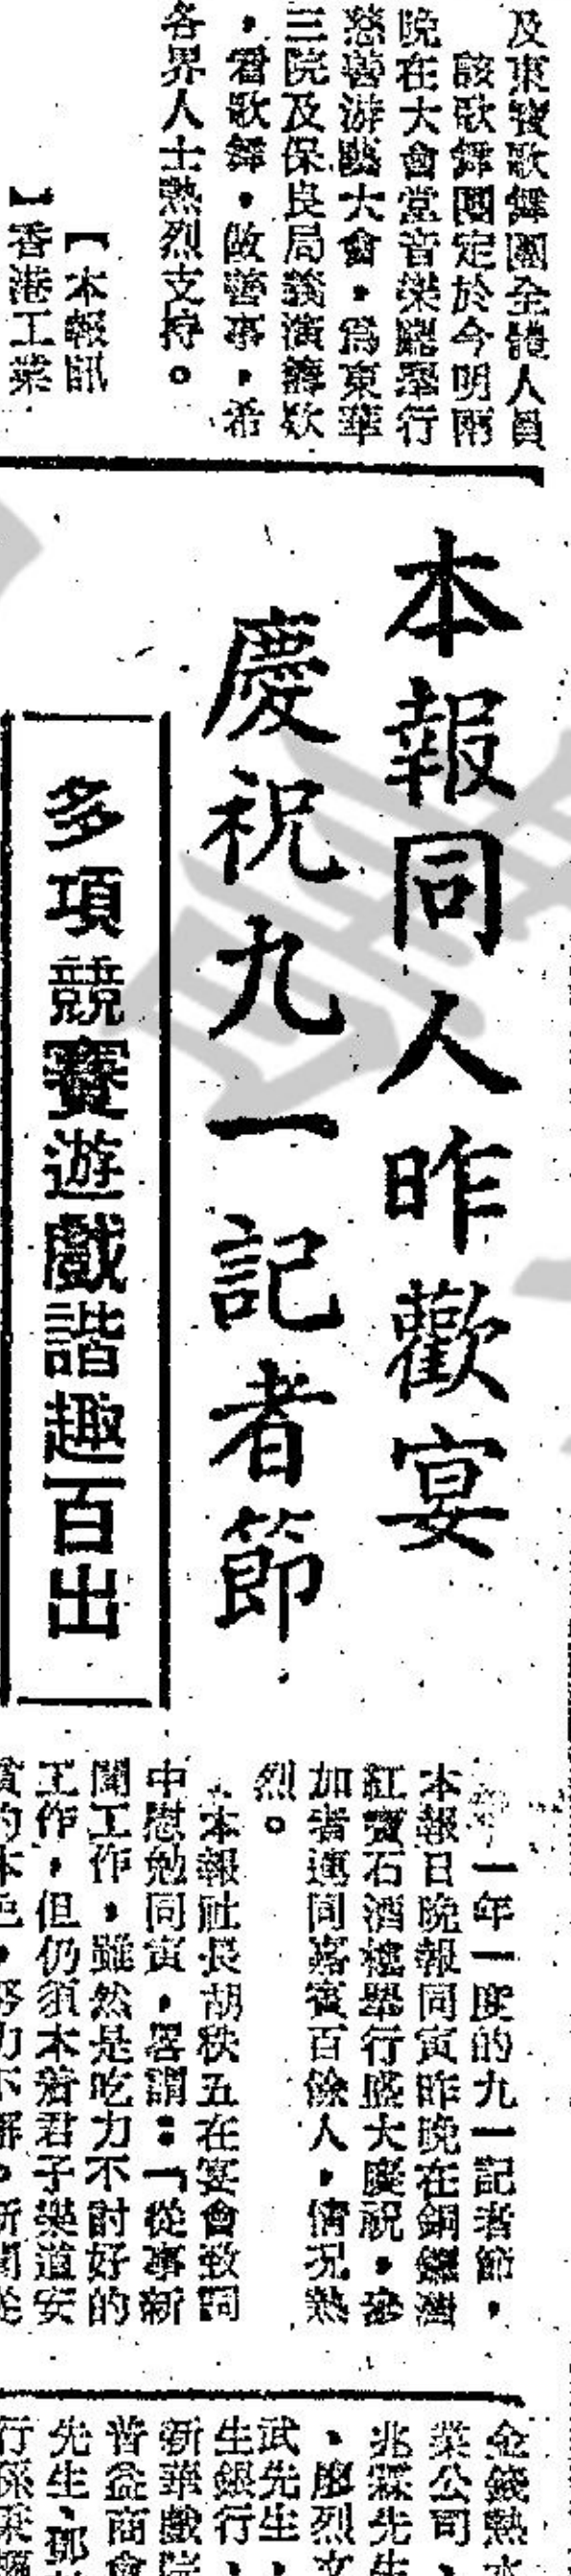 及東寶歌舞團全體人員
該歌舞團定於今明兩
晚在大會堂音樂廳舉行
慈善游藝大會，為東華
三院及保良局義演籌款
，看歌舞，做善事，希
各界人士熱烈支持。
【本報訊
】香港工業
本報同人昨歡宴
慶祝九一記者節
多項競賽遊戲諧趣百出
一年一度的九一記者節，
本報日晚報同寅昨晚在銅鑼灣
紅寶石酒樓舉行盛大慶祝，參
加者連同嘉賓百餘人，情況熱
烈。
本報社長胡秩五在宴會致詞
中慰勉同寅，畧謂：「從事新
聞工作，雖然是吃力不討好的
工作，但仍須本着君子樂道安
貧的本色，努力不懈。新聞從
金錢熱水
業公司、
兆霖先生
、廖烈文
武先生、
生銀行、
新華戲院
普益商會
先生、鄧
行孫